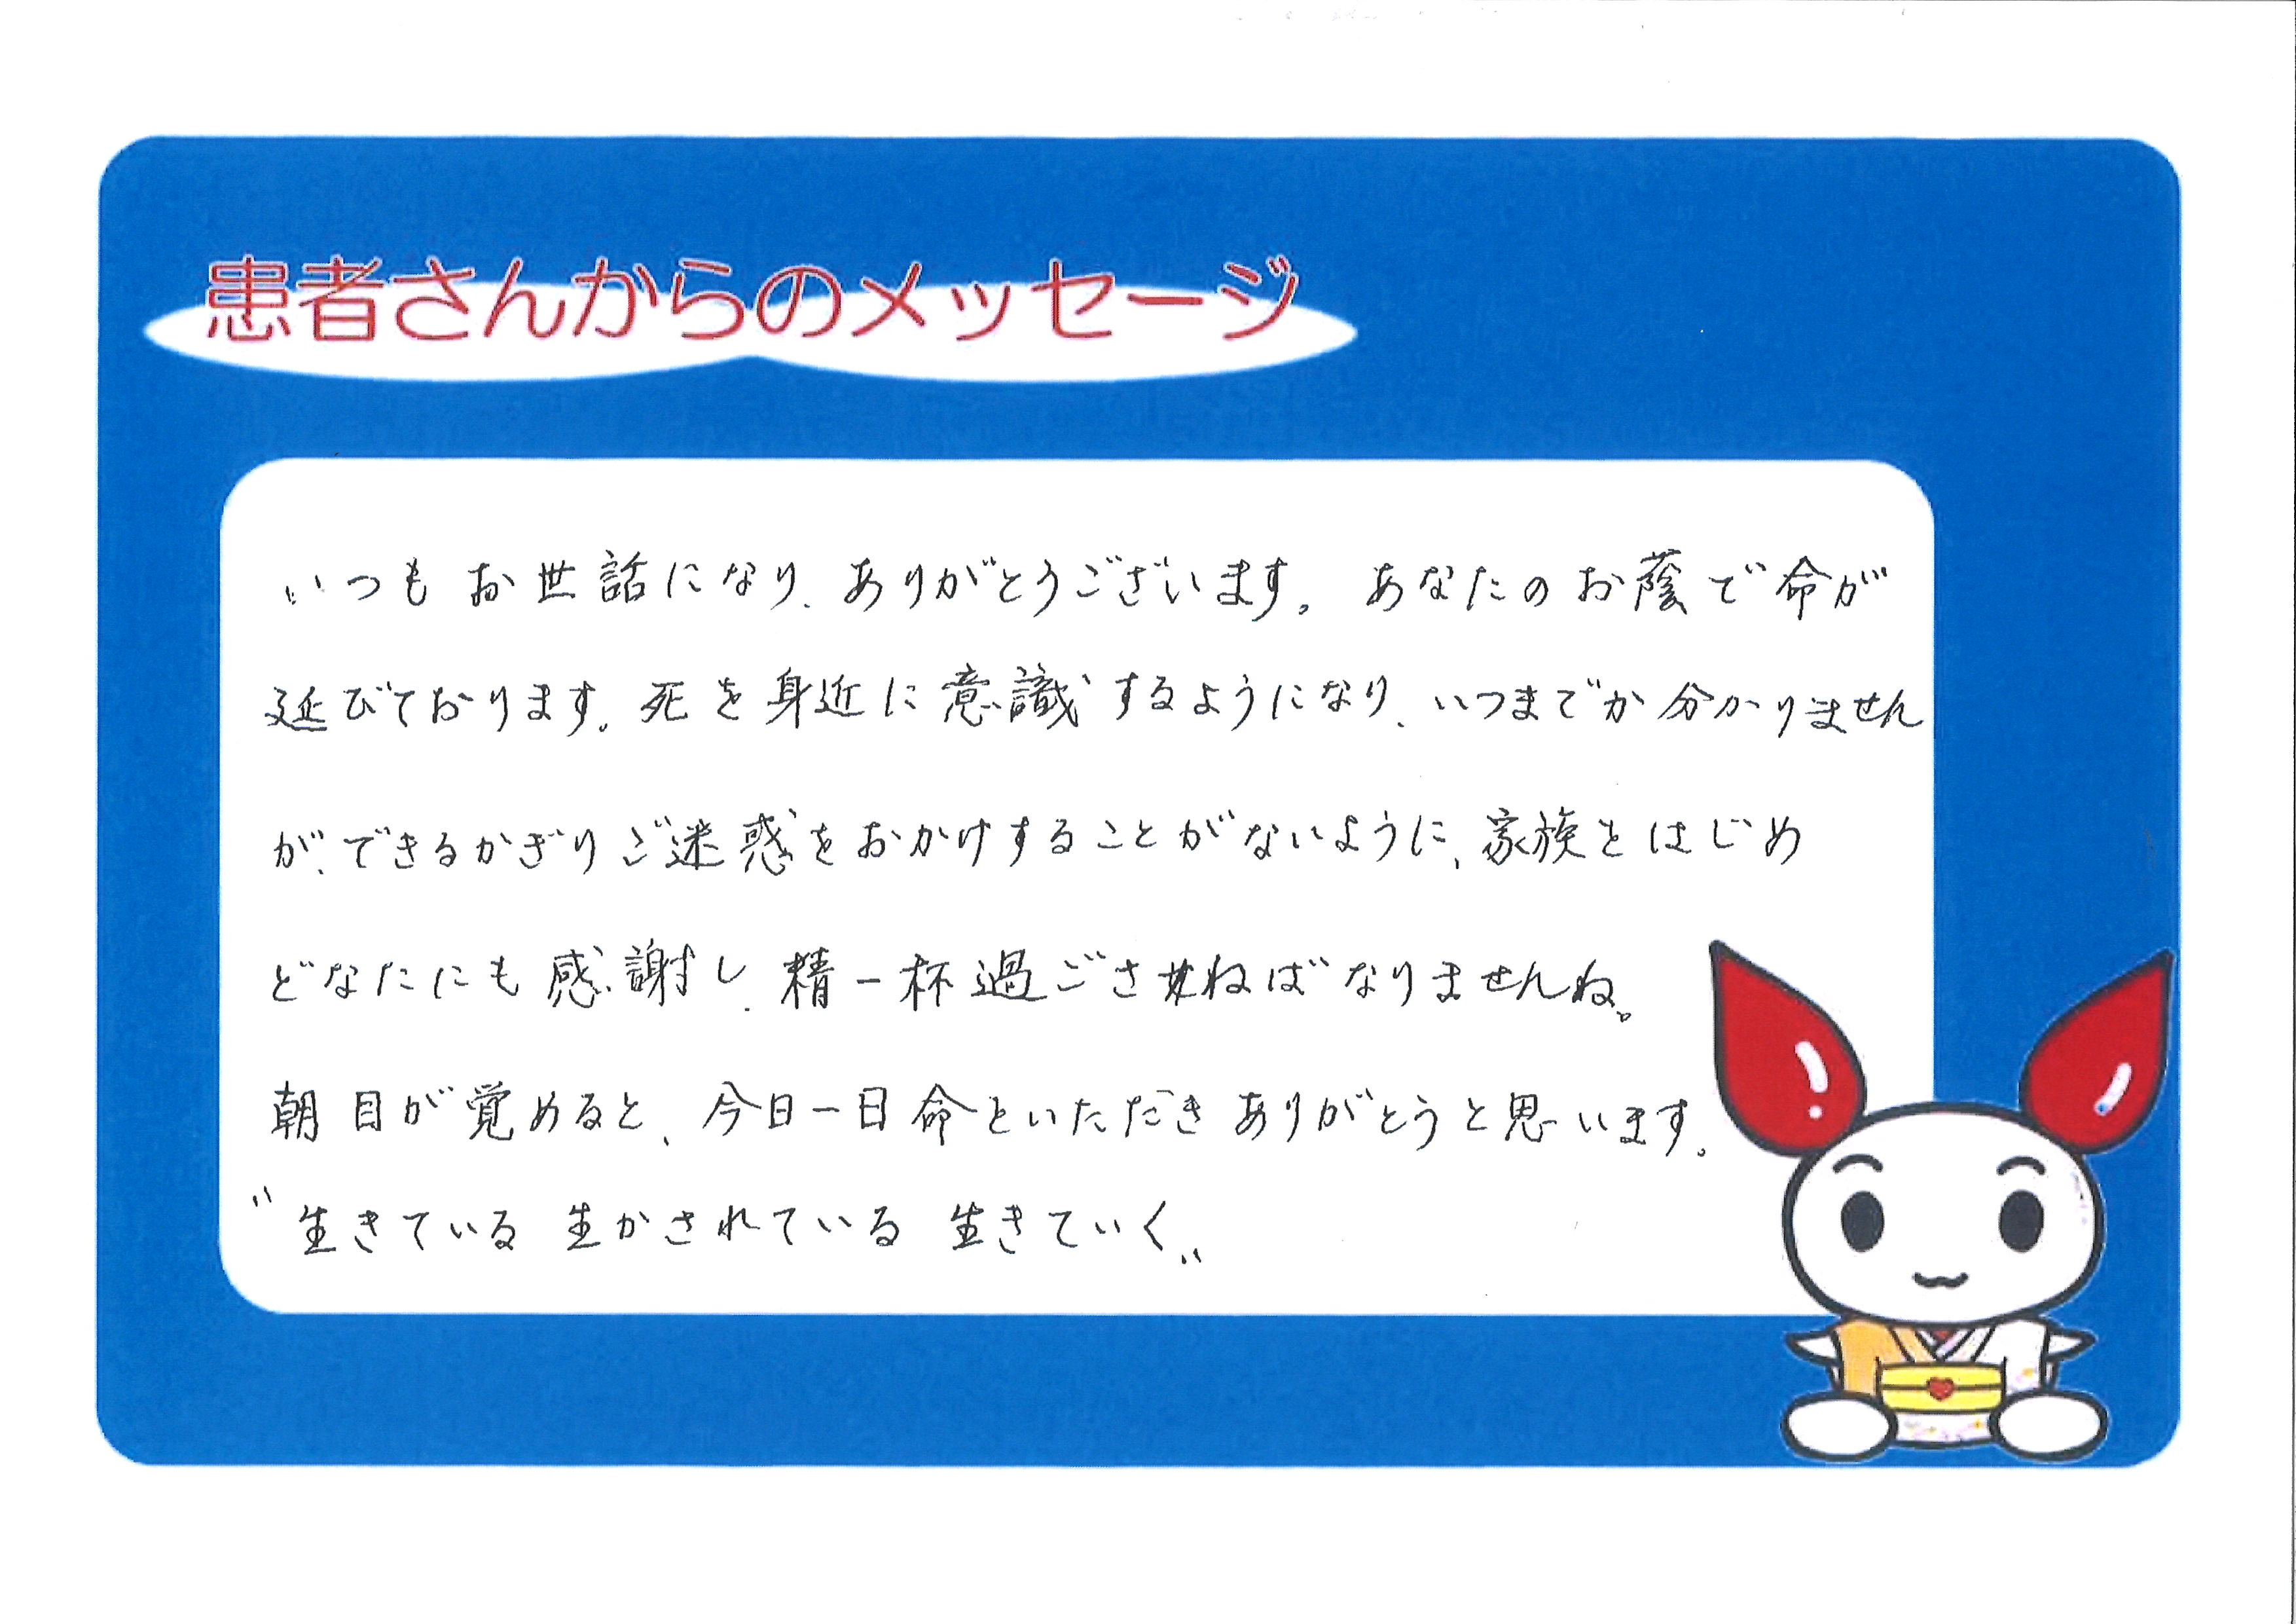 患者さんからのメッセージ
いつもお世話になり、ありがとうございます。あなたのお蔭で命が
延びております。死を身近に意識するようになり、いつまでか分かりません
が、できるかぎりご迷惑をおかけすることがないように、家族をはじめ
どなたにも感謝し、精一杯過ごさねばなりませんね。
朝目が覚めると、今日一日命をいただきありがとうと思います。
〝生きている 生かされている 生きていく〟